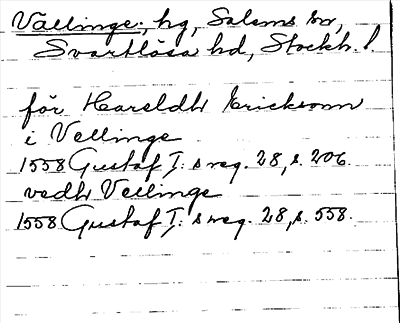 Vällinge, hg, Salems sn,
Svartlösa hd, Stockh. l.
för Hareldh Ericksonn
i Vellinge
1558 Gustaf I: s reg. 28, s. 206.
vedh Vellinge
1558 Gustaf I: s reg. 28, s. 558.